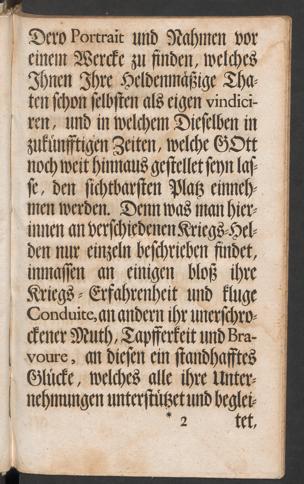 Dero Portrait und Nahmen vor
einem Wercke zu finden, welches
Ihnen Ihre Heldenmäßige Tha-
ten schon selbsten als eigen vindici-
ren, und in welchem Dieselben in
zukünfftigen Zeiten, welche GOtt
noch weit hinnaus gestellet seyn las-
se, den sichtbarsten Platz einneh-
men werden. Denn was man hier-
innen an verschiedenen Kriegs-Hel-
den nur einzeln beschrieben findet,
inmassen an einigen bloß ihre
Kriegs-Erfahrenheit und kluge
Conduite, an andern ihr unerschro-
ckener Muth, Tapfferkeit und Bra-
voure, an diesen ein standhafftes
Glücke, welches alle ihre Unter-
nehmungen unterstützet und beglei-
* 2 tet,